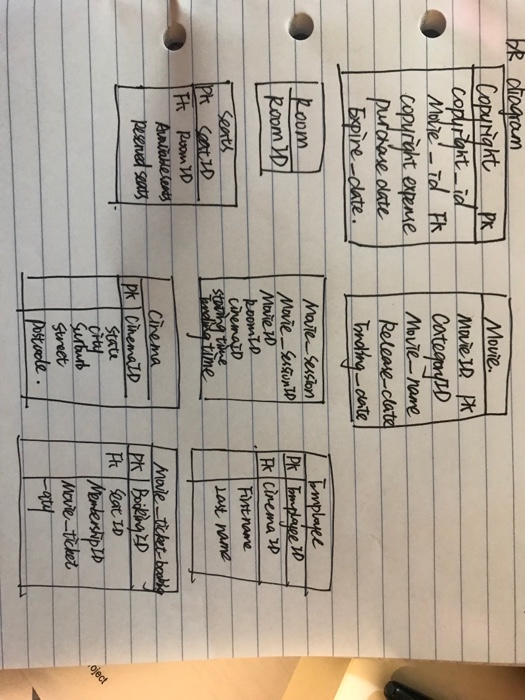 ER diagram
Copyright PK
Copyright_id
Movie_id FK
copyright expense
purchase date
Expire_date.
Movie.
MovieID PK
CategoryID
Movie_name
Release_date
Ending_date
Room
Room ID
Movie_Session
Movie_SessionID
MovieID
RoomID
CinemaID
starting time
ending time
Employee
PK EmployeeID
FK Cinema ID
First name
Last name
Seats
PK Seat ID
FK Room ID
Available seats
reserved seats
Cinema
PK CinemaID
State
City
Suburb
Street
Postcode.
Movie_ticket booking
PK BookingID
FK Seat ID
MembershipID
Movie_ticket
-qty
oject